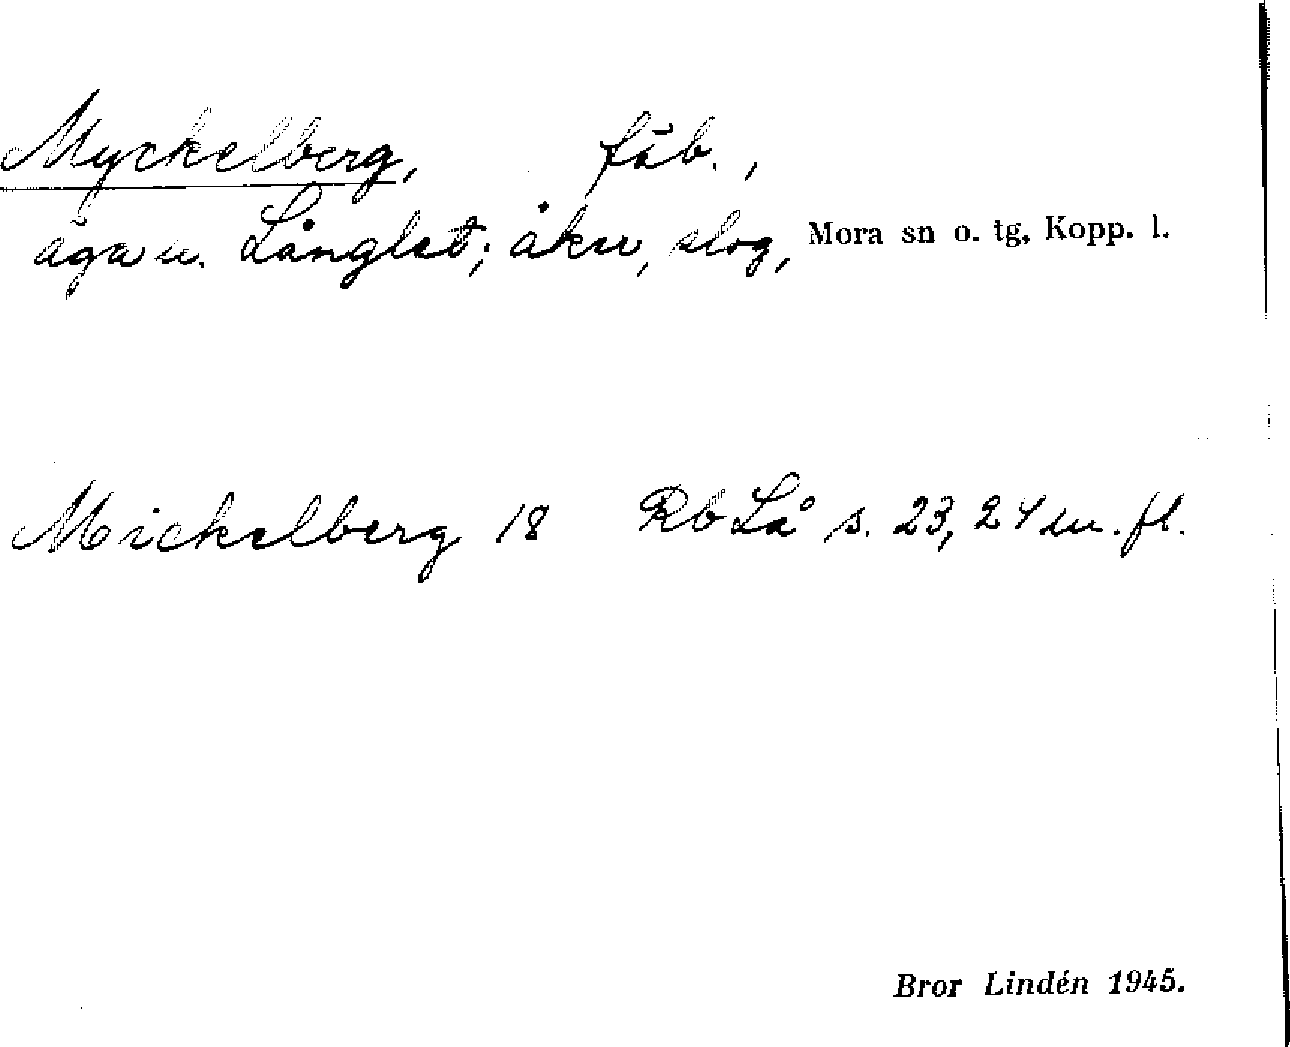 Myckelberg, fäb.,
ägare. Långlet; åker, slog, Mora sn o. tg, Kopp. l.
Mickelberg 18 Rb Lå s. 23, 24 m. fl.
Bror Lindén 1945.